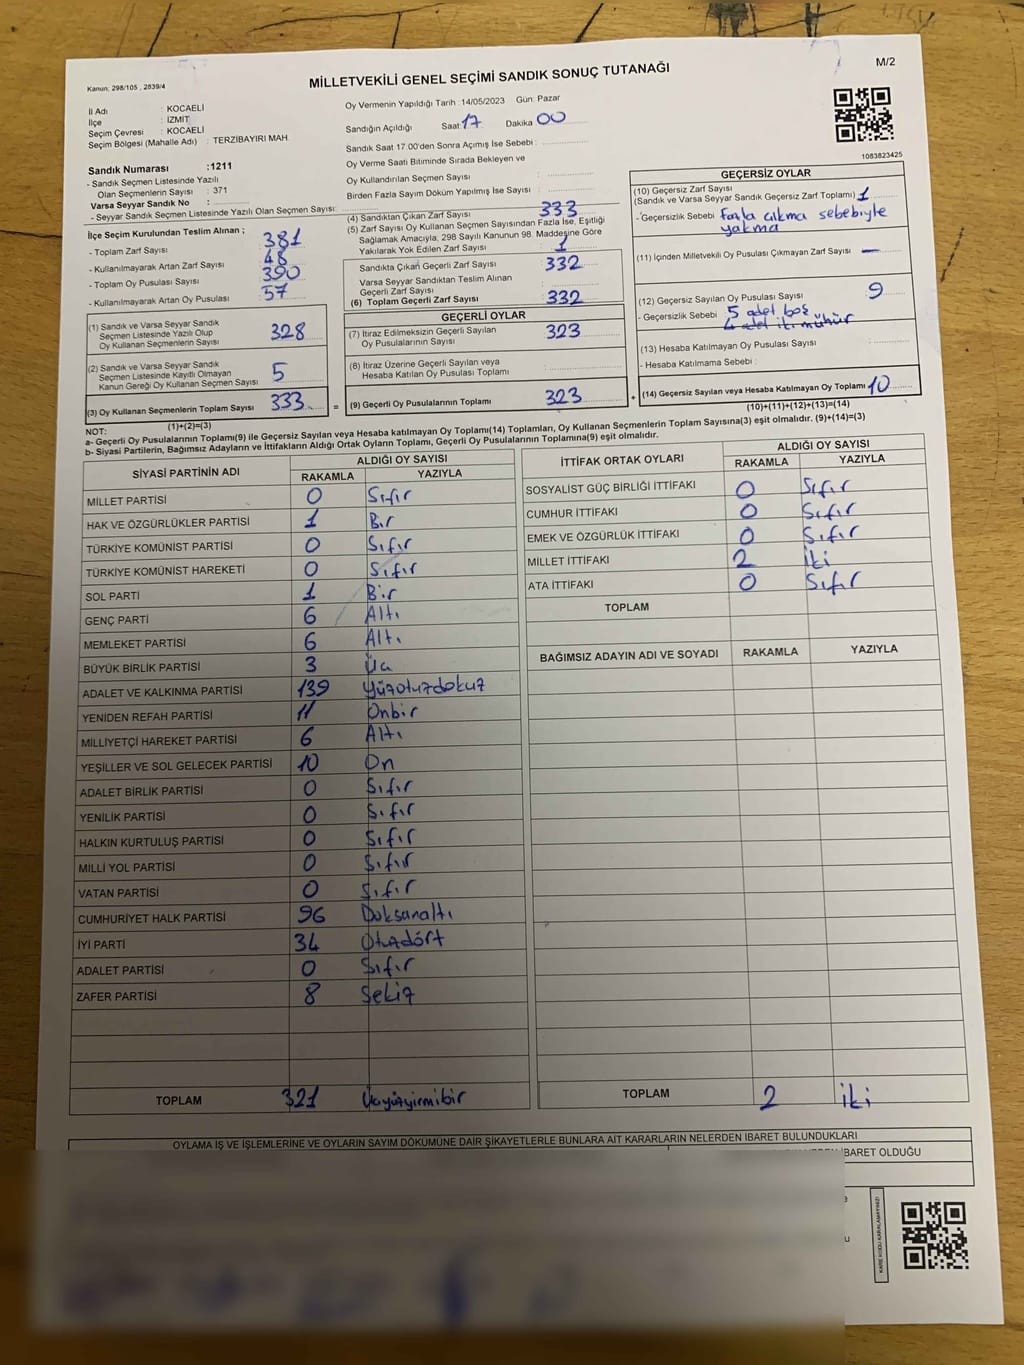 Kanun; 298/105 , 2839/4
MİLLETVEKİLİ GENEL SEÇİMİ SANDIK SONUÇ TUTANAĞI
M/2
İl Adı : KOCAELİ
İlçe : İZMİT
Seçim Çevresi : KOCAELİ
Seçim Bölgesi (Mahalle Adı) : TERZİBAYIRI MAH.
Sandık Numarası :1211
- Sandık Seçmen Listesinde Yazılı
Olan Seçmenlerin Sayısı : 371
Varsa Seyyar Sandık No :
- Seyyar Sandık Seçmen Listesinde Yazılı Olan Seçmen Sayısı:
Oy Vermenin Yapıldığı Tarih :14/05/2023 Gün: Pazar
Sandığın Açıldığı Saat: 17 Dakika 00
Sandık Saat 17:00'den Sonra Açımış İse Sebebi :
Oy Verme Saati Bitiminde Sırada Bekleyen ve
Oy Kullandırılan Seçmen Sayısı :
Birden Fazla Sayım Döküm Yapılmış İse Sayısı :
1083823425
İlçe Seçim Kurulundan Teslim Alınan ;
- Toplam Zarf Sayısı : 381
- Kullanılmayarak Artan Zarf Sayısı : 48
- Toplam Oy Pusulası Sayısı : 390
- Kullanılmayarak Artan Oy Pusulası : 57
(1) Sandık ve Varsa Seyyar Sandık
Seçmen Listesinde Yazılı Olup
Oy Kullanan Seçmenlerin Sayısı 328
(2) Sandık ve Varsa Seyyar Sandık
Seçmen Listesinde Kayıtlı Olmayan
Kanun Gereği Oy Kullanan Seçmen Sayısı 5
(3) Oy Kullanan Seçmenlerin Toplam Sayısı 333 =
(1)+(2)=(3)
(4) Sandıktan Çıkan Zarf Sayısı 333
(5) Zarf Sayısı Oy Kullanan Seçmen Sayısından Fazla İse, Eşitliği
Sağlamak Amacıyla, 298 Sayılı Kanunun 98. Maddesine Göre
Yakılarak Yok Edilen Zarf Sayısı : 1
Sandıkta Çıkan Geçerli Zarf Sayısı : 332
Varsa Seyyar Sandıktan Teslim Alınan
Geçerli Zarf Sayısı
(6) Toplam Geçerli Zarf Sayısı : 332
GEÇERLİ OYLAR
(7) İtiraz Edilmeksizin Geçerli Sayılan
Oy Pusulalarının Sayısı : 323
(8) İtiraz Üzerine Geçerli Sayılan veya
Hesaba Katılan Oy Pusulası Toplamı :
(9) Geçerli Oy Pusulalarının Toplamı : 323 +
GEÇERSİZ OYLAR
(10) Geçersiz Zarf Sayısı
(Sandık ve Varsa Seyyar Sandık Geçersiz Zarf Toplamı) 1
- Geçersizlik Sebebi : fazla çıkma sebebiyle
yakma
(11) İçinden Milletvekili Oy Pusulası Çıkmayan Zarf Sayısı : —
(12) Geçersiz Sayılan Oy Pusulası Sayısı : 9
- Geçersizlik Sebebi : 5 adet boş
4 adet iki mühür
(13) Hesaba Katılmayan Oy Pusulası Sayısı :
- Hesaba Katılmama Sebebi :
(14) Geçersiz Sayılan veya Hesaba Katılmayan Oy Toplamı 10
(10)+(11)+(12)+(13)=(14)
NOT:
a- Geçerli Oy Pusulalarının Toplamı(9) ile Geçersiz Sayılan veya Hesaba katılmayan Oy Toplamı(14) Toplamları, Oy Kullanan Seçmenlerin Toplam Sayısına(3) eşit olmalıdır. (9)+(14)=(3)
b- Siyasi Partilerin, Bağımsız Adayların ve İttifakların Aldığı Ortak Oyların Toplamı, Geçerli Oy Pusulalarının Toplamına(9) eşit olmalıdır.
SİYASİ PARTİNİN ADI ALDIĞI OY SAYISI
RAKAMLA YAZIYLA
MİLLET PARTİSİ 0 Sıfır
HAK VE ÖZGÜRLÜKLER PARTİSİ 1 Bir
TÜRKİYE KOMÜNİST PARTİSİ 0 Sıfır
TÜRKİYE KOMÜNİST HAREKETİ 0 Sıfır
SOL PARTİ 1 Bir
GENÇ PARTİ 6 Altı
MEMLEKET PARTİSİ 6 Altı
BÜYÜK BİRLİK PARTİSİ 3 Üç
ADALET VE KALKINMA PARTİSİ 139 Yüzotuzdokuz
YENİDEN REFAH PARTİSİ 11 Onbir
MİLLİYETÇİ HAREKET PARTİSİ 6 Altı
YEŞİLLER VE SOL GELECEK PARTİSİ 10 On
ADALET BİRLİK PARTİSİ 0 Sıfır
YENİLİK PARTİSİ 0 Sıfır
HALKIN KURTULUŞ PARTİSİ 0 Sıfır
MİLLİ YOL PARTİSİ 0 Sıfır
VATAN PARTİSİ 0 Sıfır
CUMHURİYET HALK PARTİSİ 96 Doksanaltı
İYİ PARTİ 34 Otuzdört
ADALET PARTİSİ 0 Sıfır
ZAFER PARTİSİ 8 Sekiz
TOPLAM 321 Üçyüzyirmibir
İTTİFAK ORTAK OYLARI ALDIĞI OY SAYISI
RAKAMLA YAZIYLA
SOSYALİST GÜÇ BİRLİĞİ İTTİFAKI 0 Sıfır
CUMHUR İTTİFAKI 0 Sıfır
EMEK VE ÖZGÜRLÜK İTTİFAKI 0 Sıfır
MİLLET İTTİFAKI 2 İki
ATA İTTİFAKI 0 Sıfır
TOPLAM
BAĞIMSIZ ADAYIN ADI VE SOYADI RAKAMLA YAZIYLA
TOPLAM 2 İki
OYLAMA İŞ VE İŞLEMLERİNE VE OYLARIN SAYIM DÖKÜMÜNE DAİR ŞİKAYETLERLE BUNLARA AİT KARARLARIN NELERDEN İBARET BULUNDUKLARI
İBARET OLDUĞU
KARE KODU KARALAMAYINIZ!